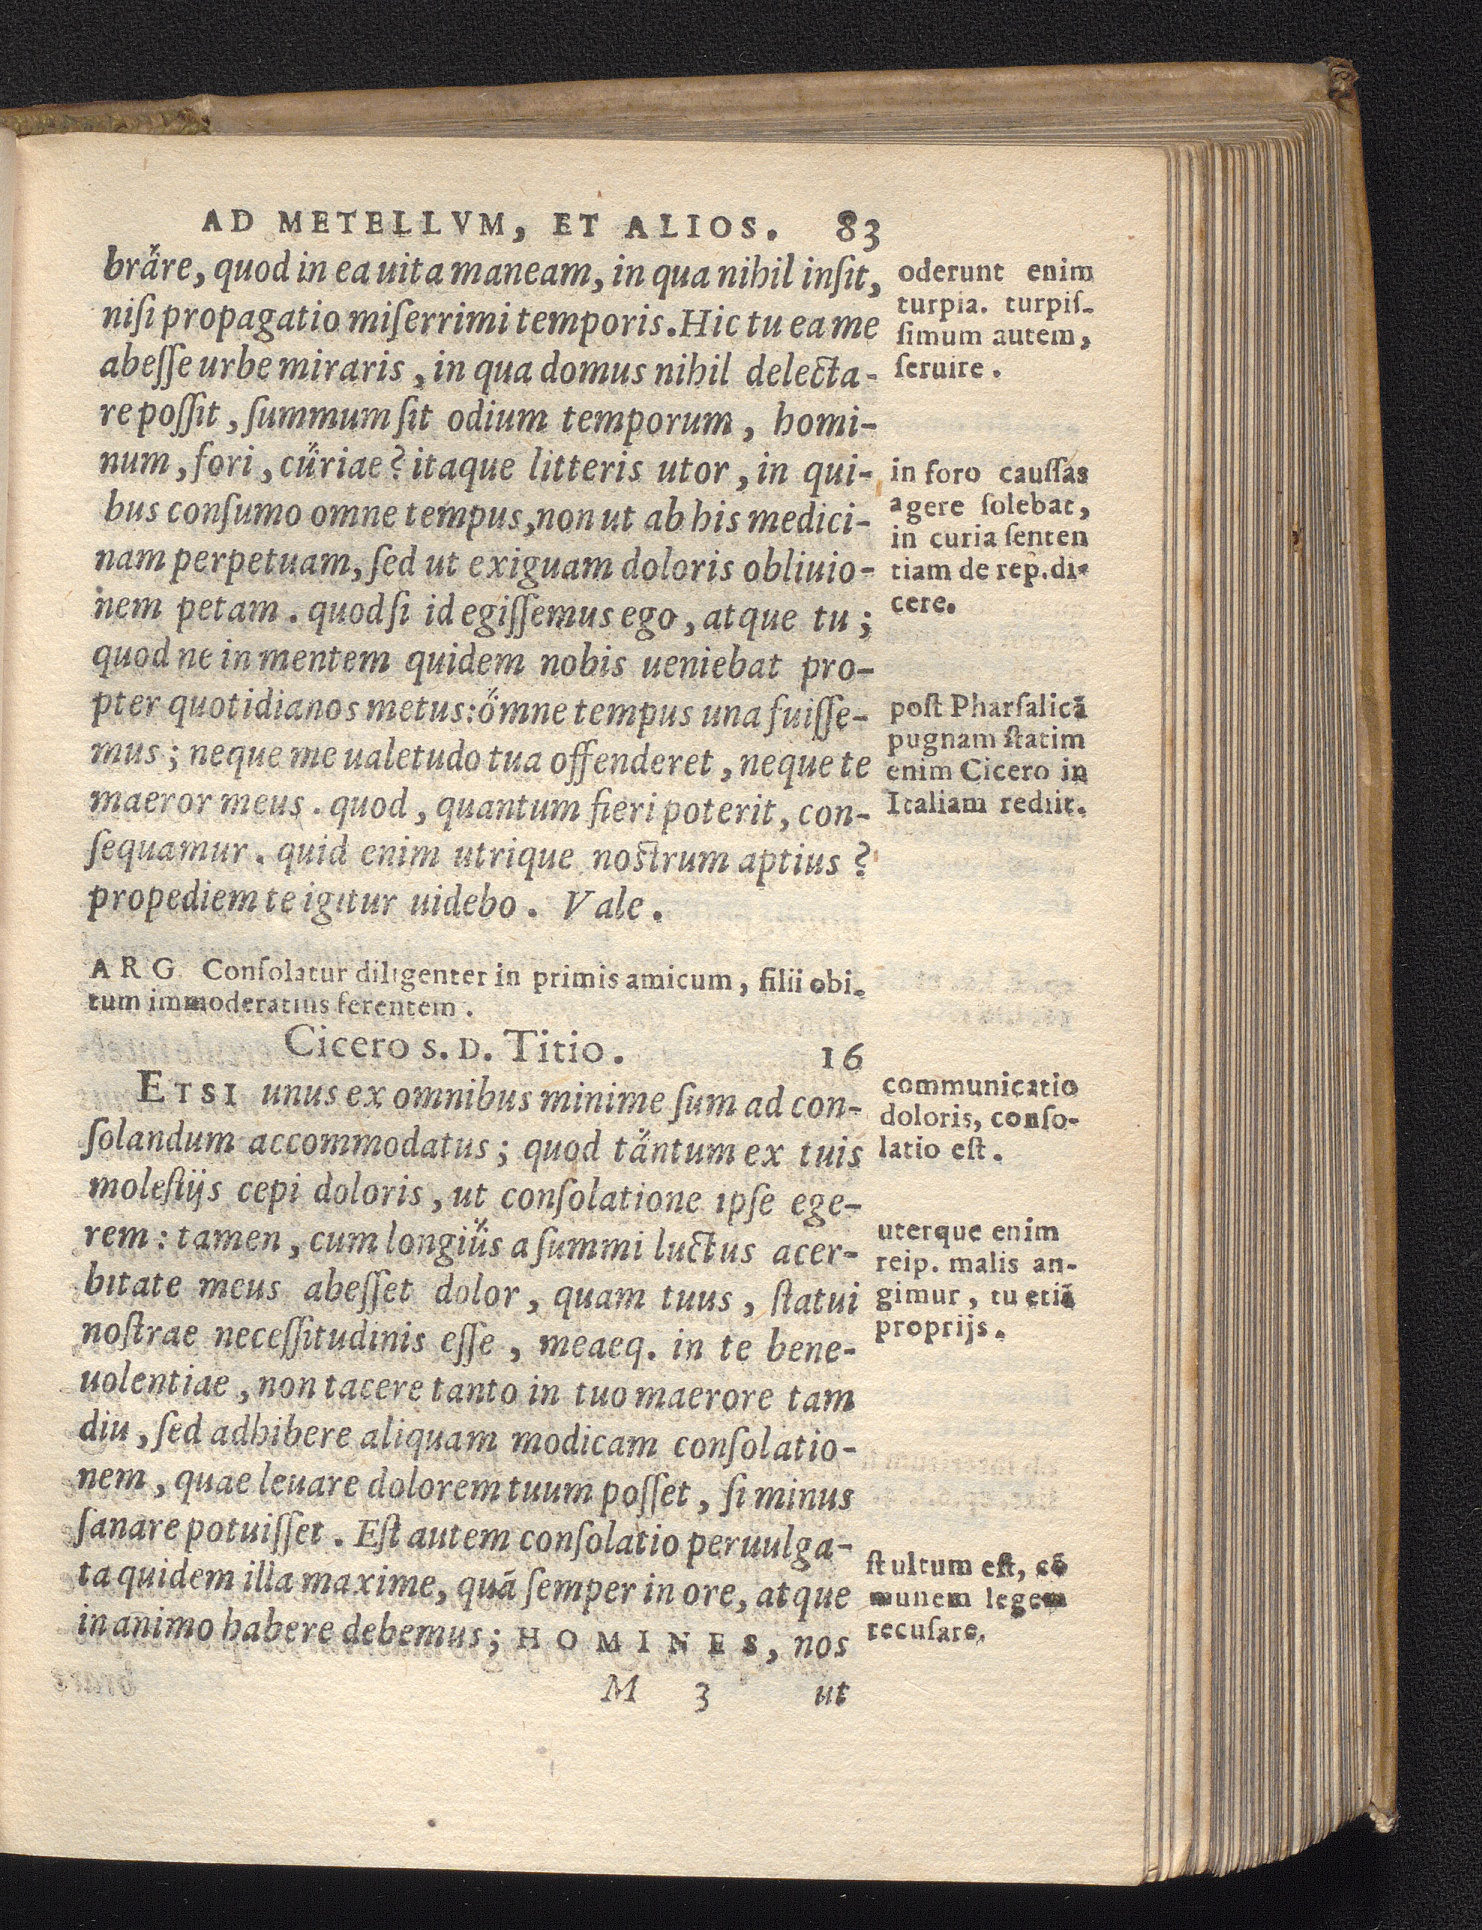 AD METELLVM, ET ALIOS. 83
brare, quod in ea uita maneam, in qua nihil inſit,
niſi propagatio miſerrimi temporis. Hic tu ea me
abeſſe urbe miraris, in qua domus nihil delecta-
re poſſit, ſummum ſit odium temporum, homi-
num, fori, curiae? itaque litteris utor, in qui-
bus conſumo omne tempus, non ut ab his medici-
nam perpetuam, ſed ut exiguam doloris obliuio-
nem petam. quod ſi id egiſſemus ego, atque tu;
quod ne in mentem quidem nobis ueniebat pro-
pter quotidianos metus: omne tempus una fuiſſe-
mus; neque me ualetudo tua offenderet, neque te
maeror meus. quod, quantum fieri poterit, con-
ſequamur. quid enim utrique noſtrum aptius?
propediem te igitur uidebo. Vale.
oderunt enim
turpia. turpiſ-
ſimum autem,
ſeruire.
in foro cauſſas
agere ſolebat,
in curia ſenten
tiam de rep. di-
cere.
poſt Pharſalicã
pugnam ſtatim
enim Cicero in
Italiam rediit.
ARG. Conſolatur diligenter in primis amicum, filii obi-
tum immoderatius ferentem.
Cicero S. D. Titio. 16
ETSI unus ex omnibus minime ſum ad con-
ſolandum accommodatus; quod tantum ex tuis
moleſtijs cepi doloris, ut conſolatione ipſe ege-
rem: tamen, cum longius a ſummi luctus acer-
bitate meus abeſſet dolor, quam tuus, ſtatui
noſtrae neceſſitudinis eſſe, meaeq. in te bene-
uolentiae, non tacere tanto in tuo maerore tam
diu, ſed adhibere aliquam modicam conſolatio-
nem, quae leuare dolorem tuum poſſet, ſi minus
ſanare potuiſſet. Eſt autem conſolatio peruulga-
ta quidem illa maxime, quã ſemper in ore, atque
in animo habere debemus; HOMINES, nos
communicatio
doloris, conſo-
latio eſt.
uterque enim
reip. malis an-
gimur, tu etiã
proprijs.
ſtultum eſt, cõ
munem legem
recuſare.
M 3 ut